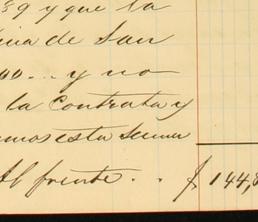 39 y que la
de San
y no
la Contrata y
esta suma
Al frente . . $ 144,